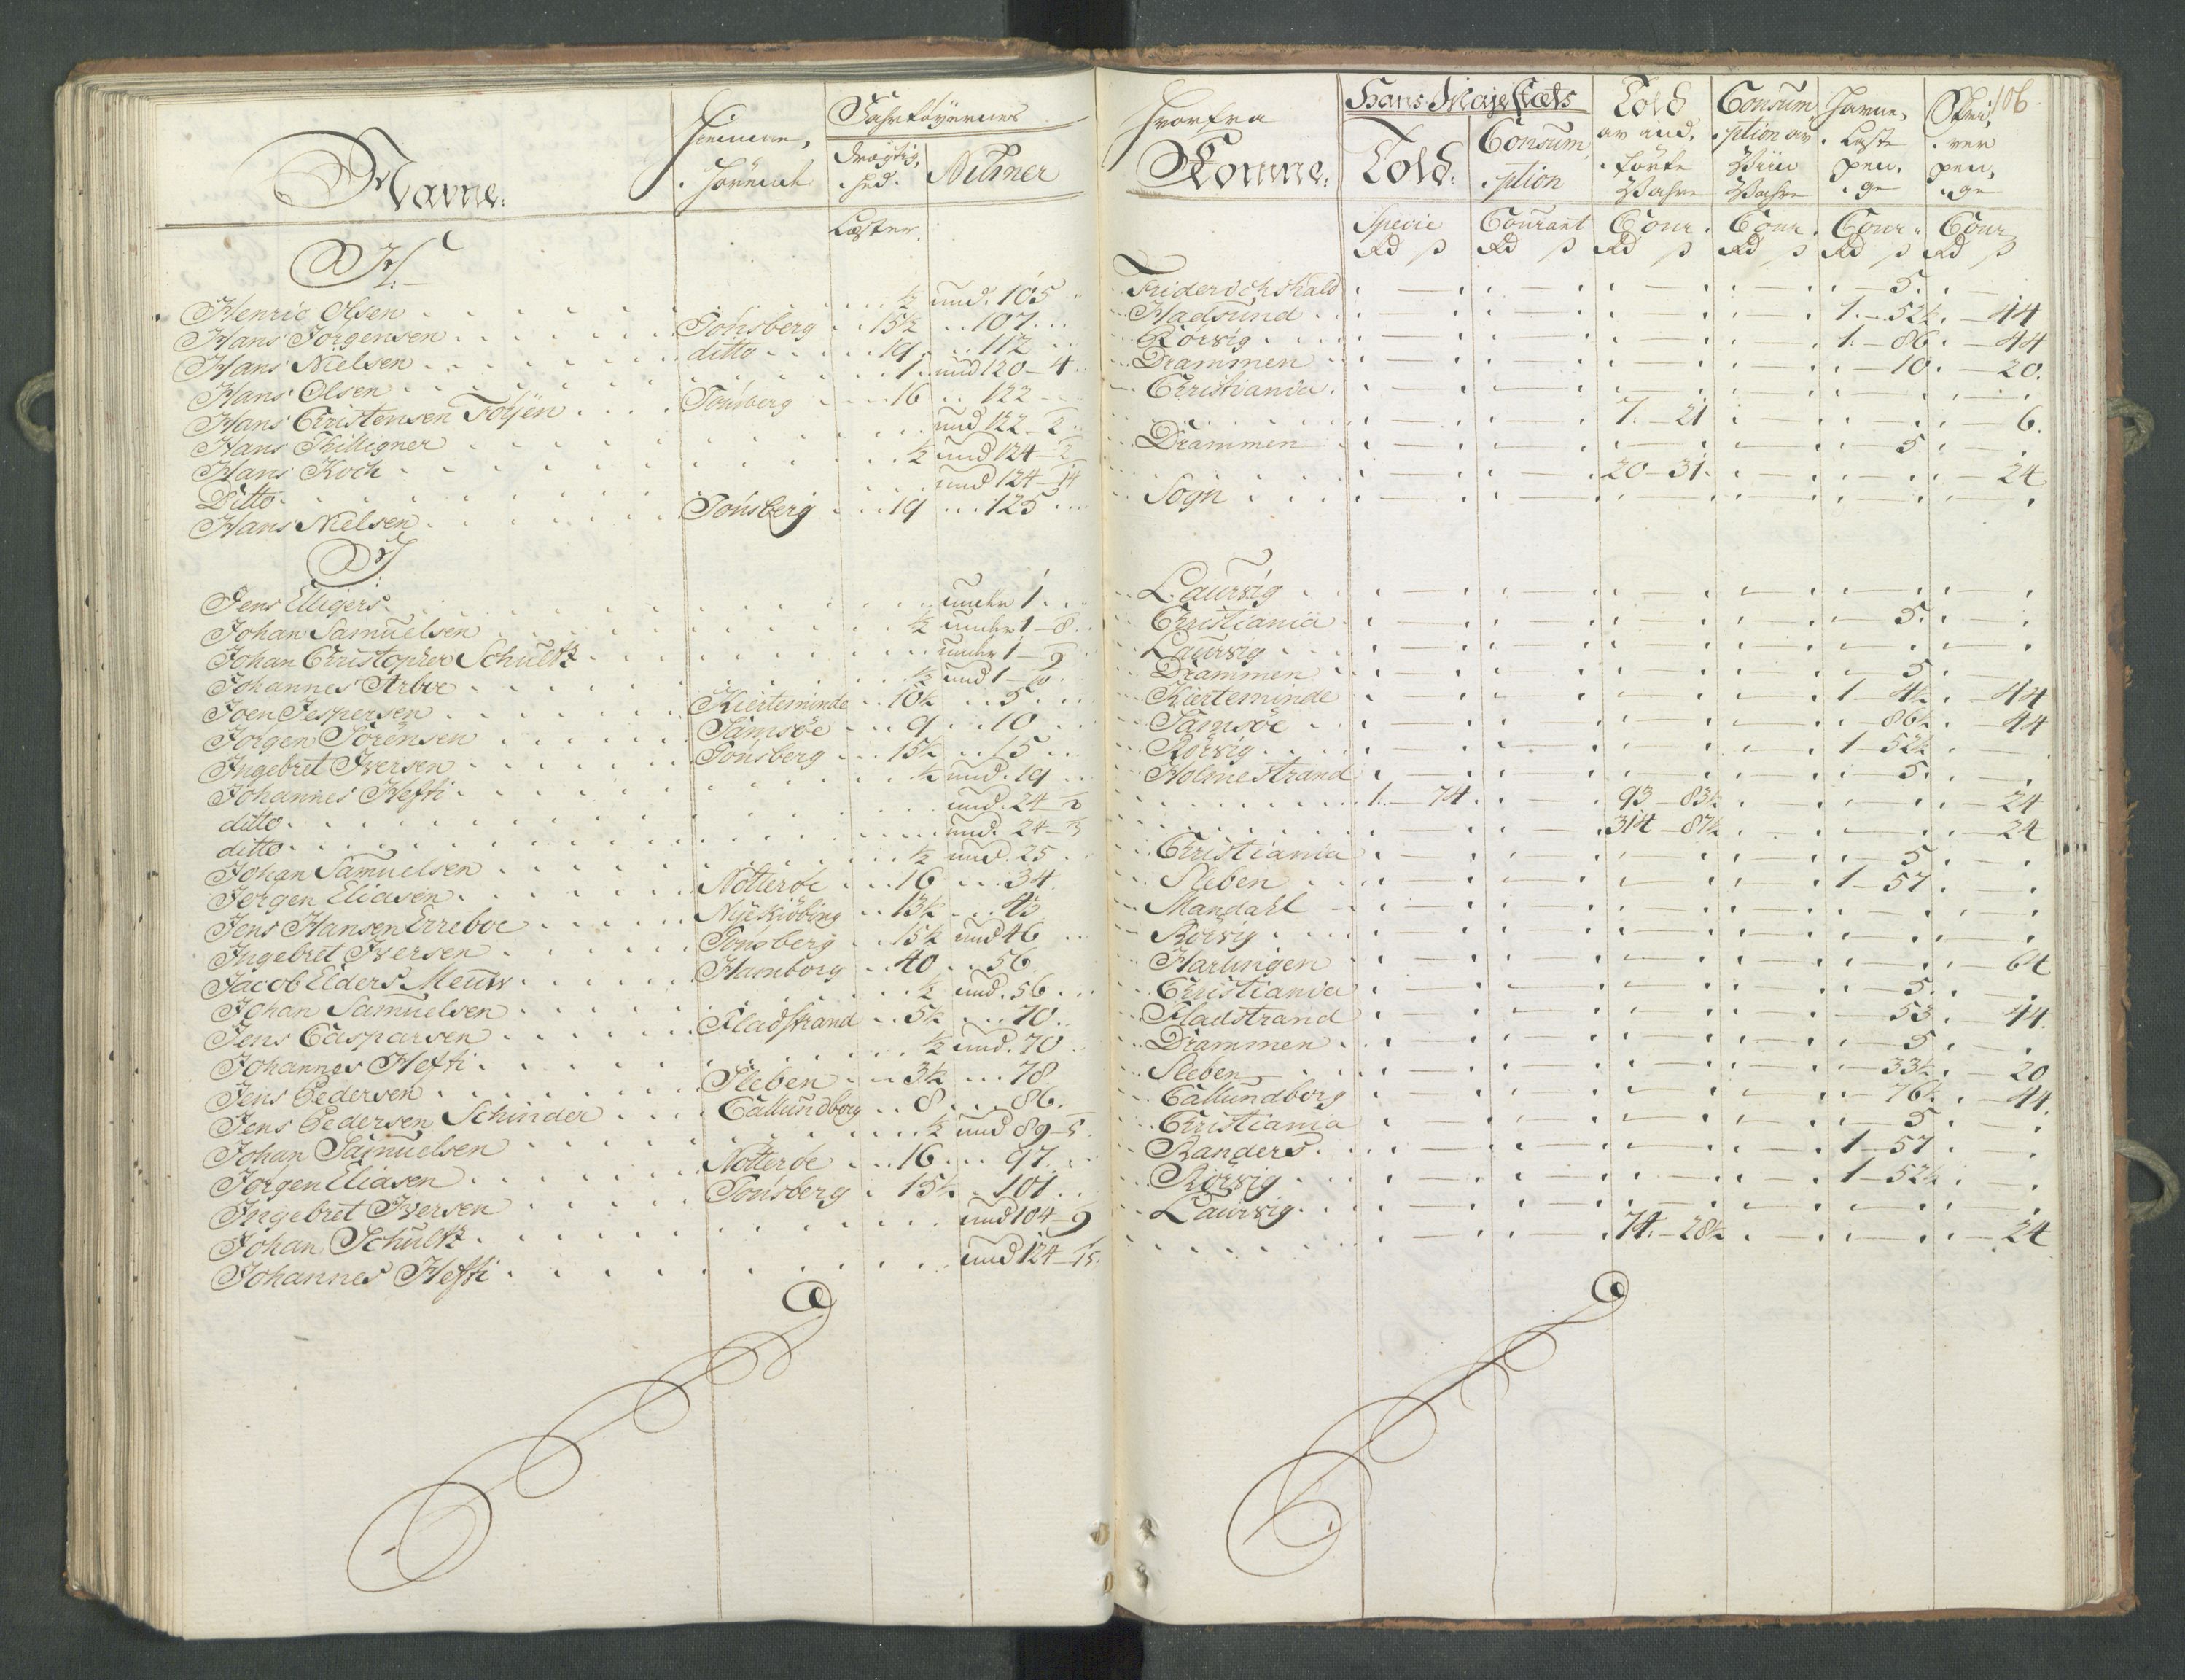 Navne.
Hiemme,
hörende
Fahrtöyernes
drægtig,
hed.
Numer
Læster.
H.
Henric Olsen ½ und. 105
Hans Jorgensen Tönsberg 15½ 107
Hans Nielsen ditto 19 112
Hans Olsen 1 und 120-4
Hans Christensen Foÿen Tönsberg 16 122
Hans Thilligner und 122-2
Hans Koch ½ und 124-2
Ditto und 124-14
Hans Nielsen Tönsberg 19 125
J.
Jens Elligers under 1
Johan Samuelsen ½ under 1-8
Johan Christopher Schultz under 1-9
Johannes Arboe ½ und 1-10
Joen Jespersen Kierteminde 10½ 5
Jorgen Sörensen Samsöe 9 10
Ingebret Iversen Tönsberg 15½ 15
Johannes Hefti ½ und. 19
ditto und. 24-2
ditto und. 24-3
Johan Samuelsen ½ und. 25
Jorgen Eliasen Nötteröe 16 34
Jens Hansen Erreboe Nÿekiöbing 13½ 43
Ingebret Iversen Tönsberg 15½ und 46
Jacob Elders Meuw Hamborg 40 56
Johan Samuelsen ½ und. 56
Jens Casparsen Fladstrand 5½ 70
Johannes Hefti ½ und. 70
Jens Pedersen Sleben 3½ 78
Jens Pedersen Schinder Callundborg 8 86
Johan Samuelsen ½ und 89-5
Jorgen Eliasen Nötteröe 16 97
Ingebret Iversen Tönsberg 15½ 101
Johan Schultz und 104-9
Johannes Hefti und 124-15
106
Hvorfra
Komme.
Hans Majestæts
Told.
Consum,
ption
Told
av ind,
förte
Wahre
Consum,
ption av
Wiin
Wahre
Havne,
Læste
pen,
ge
Skri,
ver
pen,
ge
Specie Courant Cour. Cour. Cour. Cour
Rd ß Rd ß Rd ß Rd ß Rd ß Rd ß
Friderichshald - - - - - 5 -
Hadsund - - - - 1-52½ - 44
Rörvig - - - - 1-86 - 44
Drammen - - - - - 10 - 20
Christiania - - - - - -
- - 7-21 - - - 6
Drammen - - - - - 5 -
- - 20-31 - - - 24
Sogn - - - - - -
Laurvig - - - - - -
Christiania - - - - - 5 -
Laurvig - - - - - -
Drammen - - - - - 5 -
Kierteminde - - - - 1-4½ - 44
Samsöe - - - - - 86½ - 44
Rörvig - - - - 1-52½ -
Holmestrand - - - - - 5 -
1-74 - 93-83½ - - - 24
- - 314-87½ - - - 24
Christiania - - - - - 5 -
Sleben - - - - 1-57 -
Mandahl - - - - - -
Rörvig - - - - - -
Harlingen - - - - - - 64
Christiania - - - - - 5 -
Fladstrand - - - - - 53 - 44
Drammen - - - - - 5 -
Sleben - - - - - 33½ - 20
Callundborg - - - - - 76½ - 44
Christiania - - - - - 5 -
Randers - - - - 1-57 -
Rörvig - - - - 1-52½ -
Laurvig - - - - - -
- - 74-28½ - - - 24